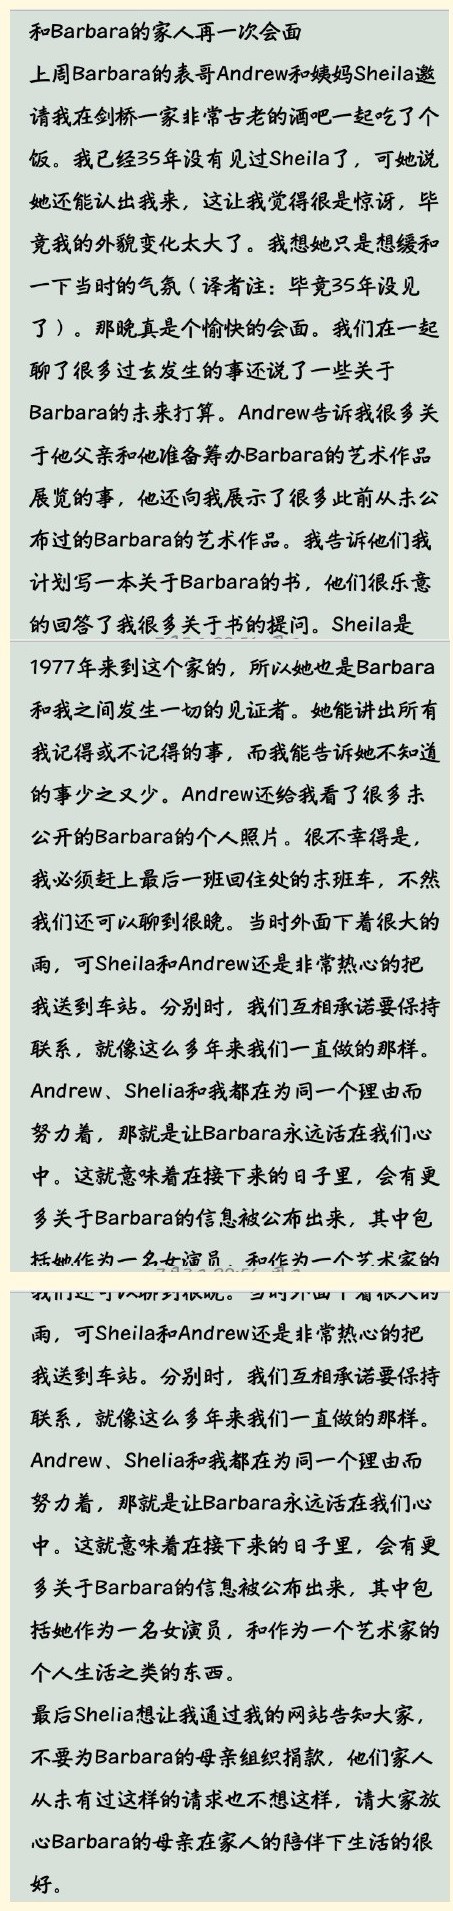 和Barbara的家人再一次会面
上周Barbara的表哥Andrew和姨妈Sheila邀
请我在剑桥一家非常古老的酒吧一起吃了个
饭。我已经35年没有见过Sheila了，可她说
她还能认出我来，这让我觉得很是惊讶，毕
竟我的外貌变化太大了。我想她只是想缓和
一下当时的气氛（译者注：毕竟35年没见
了）。那晚真是个愉快的会面。我们在一起
聊了很多过去发生的事还说了一些关于
Barbara的未来打算。Andrew告诉我很多关
于他父亲和他准备筹办Barbara的艺术作品
展览的事，他还向我展示了很多此前从未公
布过的Barbara的艺术作品。我告诉他们我
计划写一本关于Barbara的书，他们很乐意
的回答了我很多关于书的提问。Sheila是
1977年来到这个家的，所以她也是Barbara
和我之间发生一切的见证者。她能讲出所有
我记得或不记得的事，而我能告诉她不知道
的事少之又少。Andrew还给我看了很多未
公开的Barbara的个人照片。很不幸得是，
我必须赶上最后一班回住处的末班车，不然
我们还可以聊到很晚。当时外面下着很大的
雨，可Sheila和Andrew还是非常热心的把
我送到车站。分别时，我们互相承诺要保持
联系，就像这么多年来我们一直做的那样。
Andrew、Shelia和我都在为同一个理由而
努力着，那就是让Barbara永远活在我们心
中。这就意味着在接下来的日子里，会有更
多关于Barbara的信息被公布出来，其中包
括她作为一名女演员，和作为一个艺术家的
我们还可以聊到很晚。当时外面下着很大的
雨，可Sheila和Andrew还是非常热心的把
我送到车站。分别时，我们互相承诺要保持
联系，就像这么多年来我们一直做的那样。
Andrew、Shelia和我都在为同一个理由而
努力着，那就是让Barbara永远活在我们心
中。这就意味着在接下来的日子里，会有更
多关于Barbara的信息被公布出来，其中包
括她作为一名女演员，和作为一个艺术家的
个人生活之类的东西。
最后Shelia想让我通过我的网站告知大家，
不要为Barbara的母亲组织捐款，他们家人
从未有过这样的请求也不想这样，请大家放
心Barbara的母亲在家人的陪伴下生活的很
好。